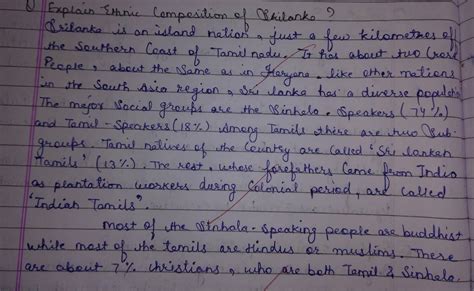 Explain Ethnic Composition of Srilanka ?
Srilanka is an island nation, just a few kilometres of
the Southern Coast of Tamil nadu. It has about two Crore
People, about the same as in Haryana. like other nations
in the South Asia region, Sri lanka has a diverse population
The major Social groups are the Sinhala-Speakers (74%)
and Tamil-Speakers (18%) Among Tamils there are two Sub-
groups. Tamil natives of the Country are called 'Sri Lankan
Tamils' (13%). The rest, whose forefathers Came from India
as plantation workers during Colonial period, are called
"Indian Tamils".
most of the Sinhala-Speaking people are buddhist
while most of the tamils are Hindus or muslims. There
are about 7% christians, who are both Tamil & Sinhala.